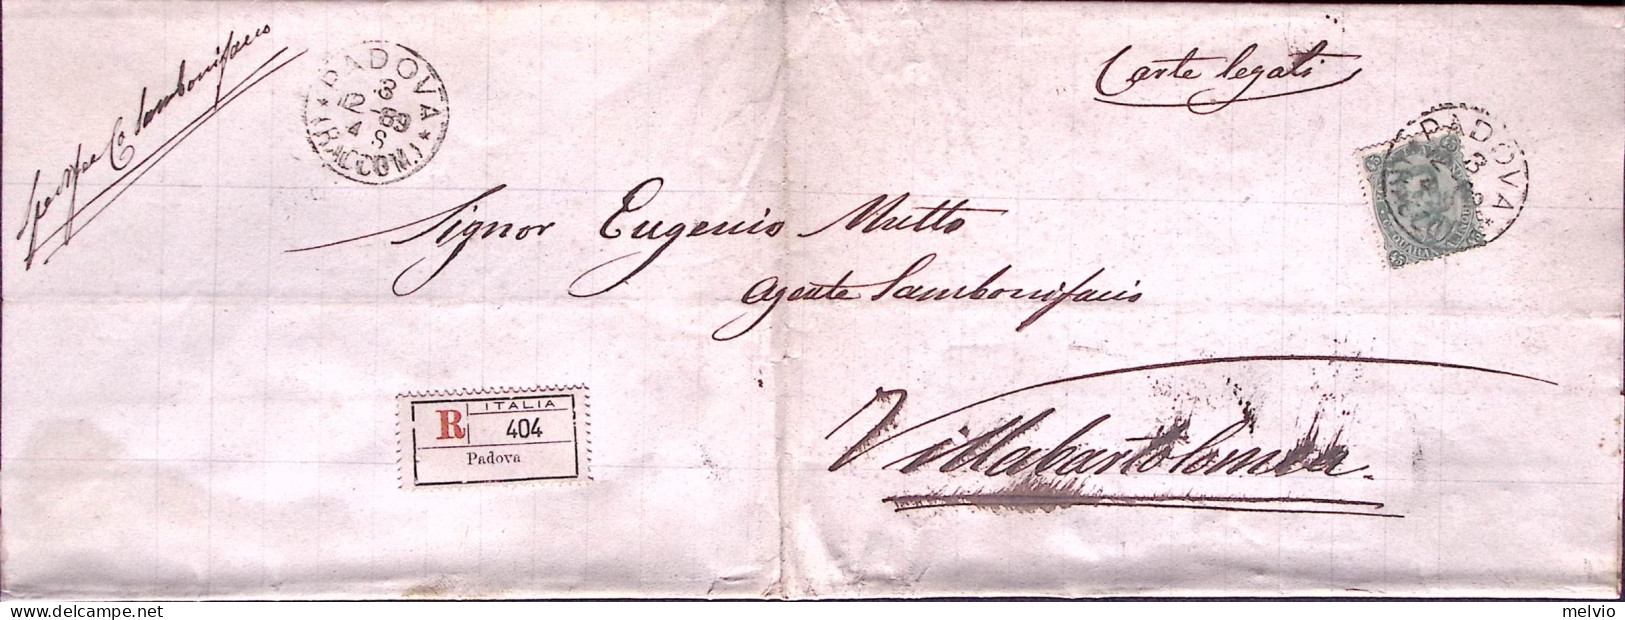 Sambonifacio
PADOVA
3
12 89
4 S
(RACCOM.)
Carte legati
PADOVA
3
45
Signor Eugenio Mutto
Agente Sambonifacio
R ITALIA
404
Padova
Villabartolomea
melvio